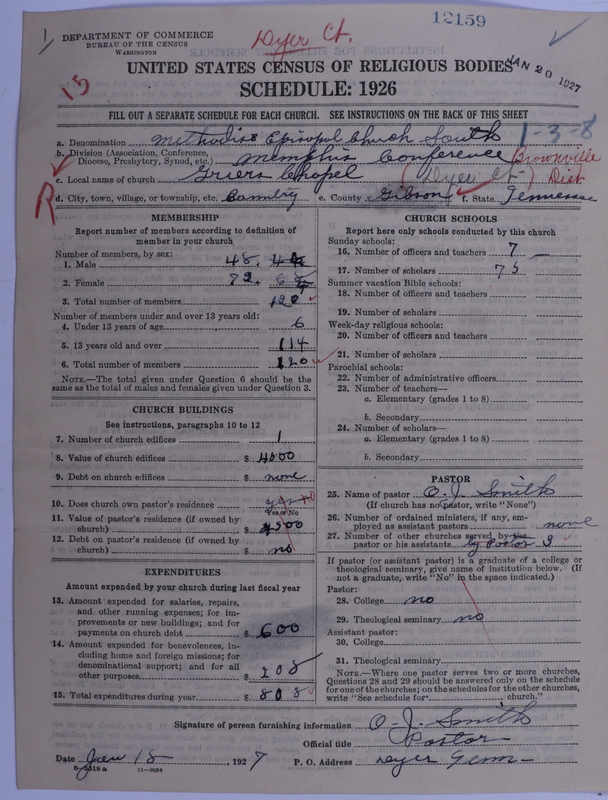 12159
DEPARTMENT OF COMMERCE
BUREAU OF THE CENSUS
WASHINGTON
Dyer Ct.
JAN 20 1927
15
UNITED STATES CENSUS OF RELIGIOUS BODIES
SCHEDULE: 1926
FILL OUT A SEPARATE SCHEDULE FOR EACH CHURCH. SEE INSTRUCTIONS ON THE BACK OF THIS SHEET
a. Denomination Methodist Episcopal Church South 1-3-8
b. Division (Association, Conference, Diocese, Presbytery, Synod, etc.) Memphis Conference Brownville Dist
c. Local name of church Griers Chapel (Dyer Ct)
R
d. City, town, village, or township, etc. Country e. County Gibson f. State Tennessee
MEMBERSHIP
Report number of members according to definition of member in your church
Number of members, by sex:
1. Male 48
2. Female 72
3. Total number of members 120
Number of members under and over 13 years old:
4. Under 13 years of age 6
5. 13 years old and over 114
6. Total number of members 120
NOTE.—The total given under Question 6 should be the same as the total of males and females given under Question 3.
CHURCH BUILDINGS
See instructions, paragraphs 10 to 12
7. Number of church edifices 1
8. Value of church edifices $ 4000
9. Debt on church edifices $ none
10. Does church own pastor's residence
Yes or No
11. Value of pastor's residence (if owned by church) $
12. Debt on pastor's residence (if owned by church) $ no
EXPENDITURES
Amount expended by your church during last fiscal year
13. Amount expended for salaries, repairs, and other running expenses; for improvements or new buildings; and for payments on church debt $ 600
14. Amount expended for benevolences, including home and foreign missions; for denominational support; and for all other purposes $ 208
15. Total expenditures during year $ 808
CHURCH SCHOOLS
Report here only schools conducted by this church
Sunday schools:
16. Number of officers and teachers 7
17. Number of scholars 75
Summer vacation Bible schools:
18. Number of officers and teachers
19. Number of scholars
Week-day religious schools:
20. Number of officers and teachers
21. Number of scholars
Parochial schools:
22. Number of administrative officers
23. Number of teachers—
a. Elementary (grades 1 to 8)
b. Secondary
24. Number of scholars—
a. Elementary (grades 1 to 8)
b. Secondary
PASTOR
25. Name of pastor O. J. Smith
(If church has no pastor, write "None")
26. Number of ordained ministers, if any, employed as assistant pastors none
27. Number of other churches served by the pastor or his assistants by Pastor 3
If pastor (or assistant pastor) is a graduate of a college or theological seminary, give name of institution below. (If not a graduate, write "No" in the space indicated.)
Pastor:
28. College no
29. Theological seminary no
Assistant pastor:
30. College
31. Theological seminary
NOTE.—Where one pastor serves two or more churches, Questions 28 and 29 should be answered only on the schedule for one of the churches; on the schedules for the other churches, write "See schedule for church."
Signature of person furnishing information O. J. Smith
Official title Pastor
Date Jan 18, 1927 P. O. Address Dyer Tenn
8-5518a 11-9054